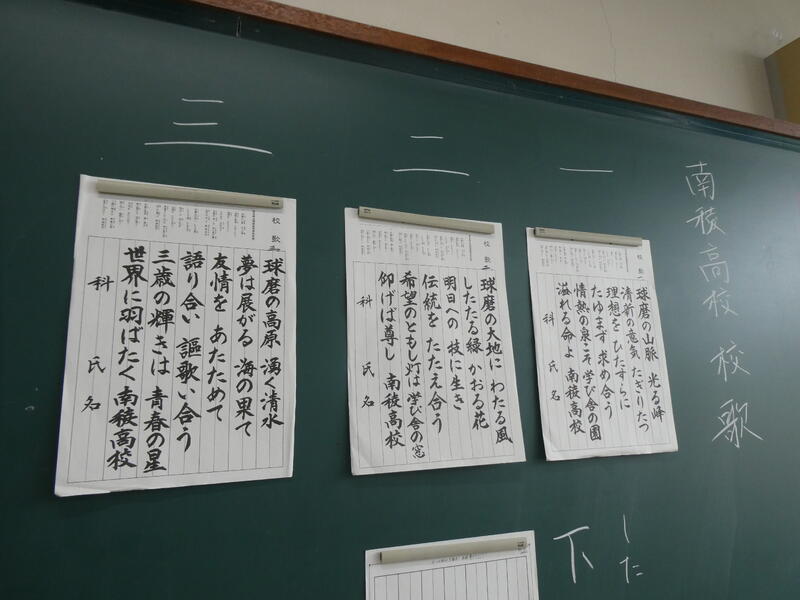 南稜高校 校歌
一
校歌一
球磨の山脈 光る峰
清新の意気 たぎりたつ
理想を ひたすらに
たゆまず 求め合う
情熱の泉こそ 学び舎の園
溢れる命よ 南稜高校
科 氏 名
二
校歌二
球磨の大地に わたる風
したたる緑 かおる花
明日への 技に生き
伝統を たたえ合う
希望のともし灯は 学び舎の窓
仰げば尊し 南稜高校
科 氏 名
三
校歌三
球磨の高原 湧く清水
夢は展がる 海の果て
友情を あたためて
語り合い 謳歌い合う
三歳の輝きは 青春の星
世界に羽ばたく 南稜高校
科 氏 名
した
下